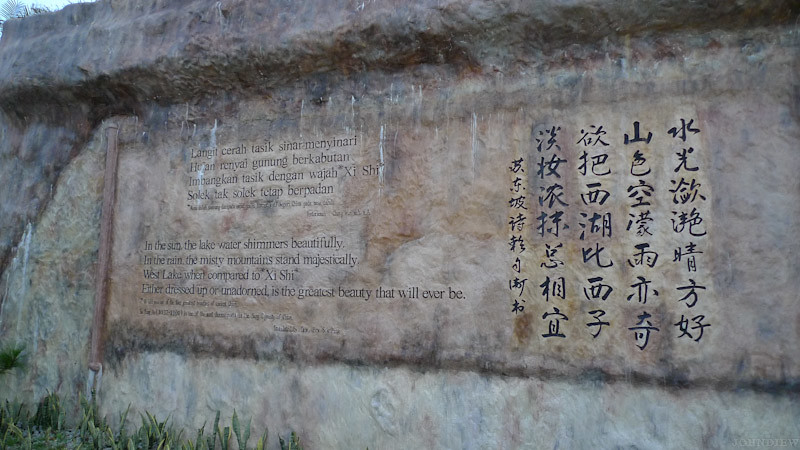 Langit cerah tasik sinar-menyinari
Hujan renyai gunung berkabutan
Imbangkan tasik dengan wajah "Xi Shi"
Solek tak solek tetap berpadan
In the sun, the lake water shimmers beautifully,
In the rain, the misty mountains stand majestically.
West Lake when compared to "Xi Shi"
Either dressed up or unadorned, is the greatest beauty that will ever be.
水光潋滟晴方好
山色空濛雨亦奇
欲把西湖比西子
淡妆浓抹总相宜
苏东坡诗
JOHNDIEW